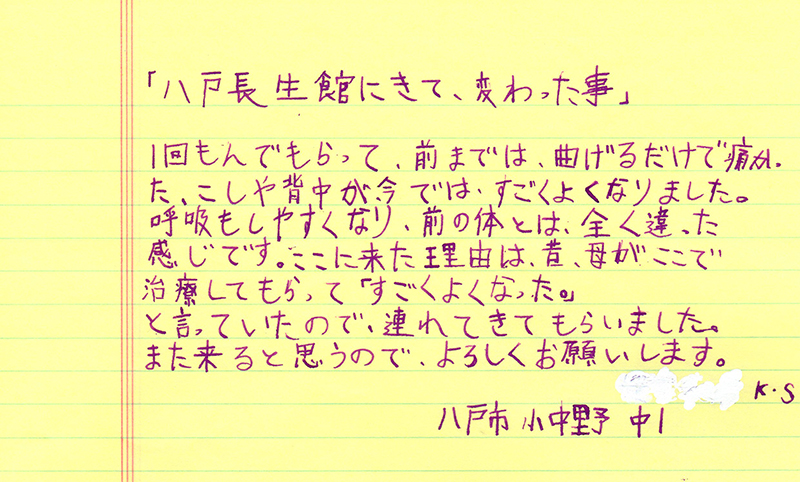 「八戸長生館にきて、変わった事」
1回もんでもらって、前までは、曲げるだけで痛かっ
た、こしや背中が今では、すごくよくなりました。
呼吸もしやすくなり、前の体とは、全く違った
感じです。ここに来た理由は、昔、母がここで
治療してもらって「すごくよくなった。」
と言っていたので、連れてきてもらいました。
また来ると思うので、よろしくお願いします。
K.S
八戸市 小中野 中1